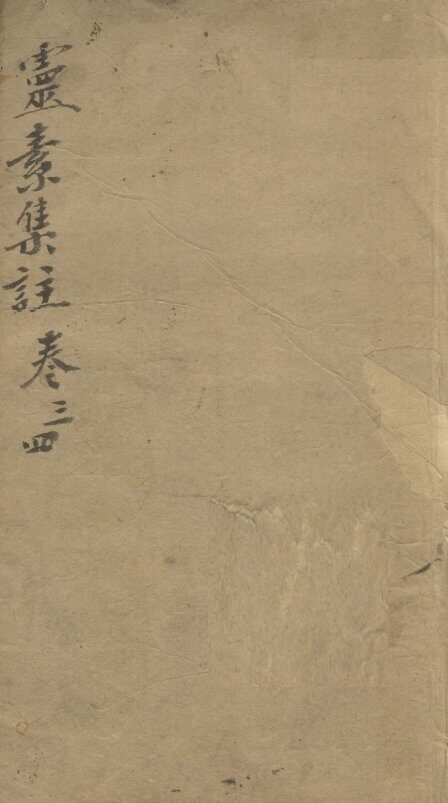 靈素集註 卷三四